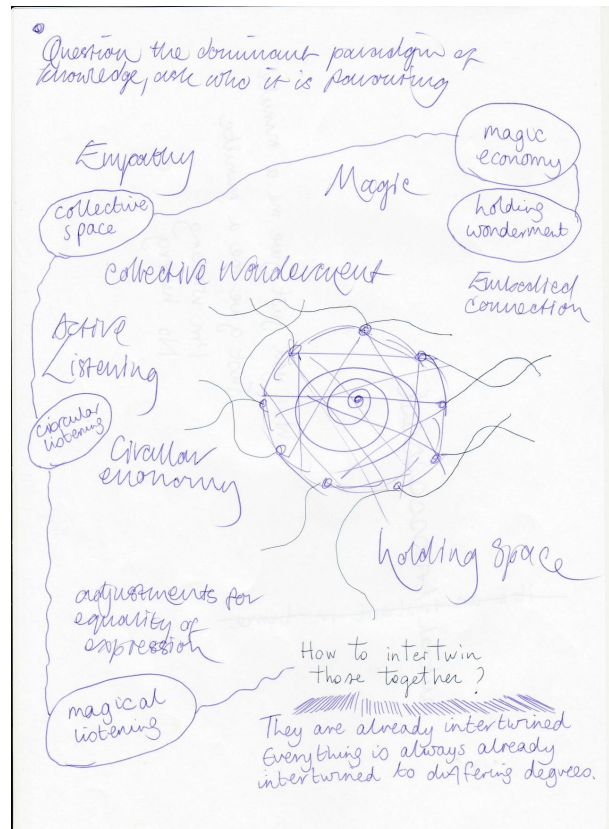 Question the dominant paradigm of
knowledge, ask who it is favouring
magic
economy
Empathy
Magic
collective
space
holding
wonderment
Collective Wonderment
Embodied
Connection
Active
Listening
circular
listening
Circular
economy
holding space
adjustments for
equality of
expression
How to intertwin
those together ?
magical
listening
They are already intertwined
Everything is always already
intertwined to differing degrees.